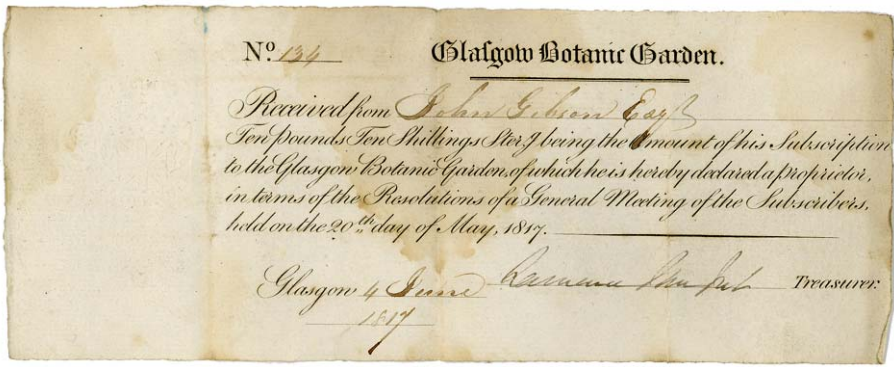 No. 134 Glasgow Botanic Garden.
Received from John Gibson Esqr
Ten pounds Ten Shillings Sterg being the Amount of his Subscription
to the Glasgow Botanic Garden, of which he is hereby declared a proprietor,
in terms of the Resolutions of a General Meeting of the Subscribers,
held on the 20th day of May, 1817.
Glasgow 4 June Treasurer.
1817